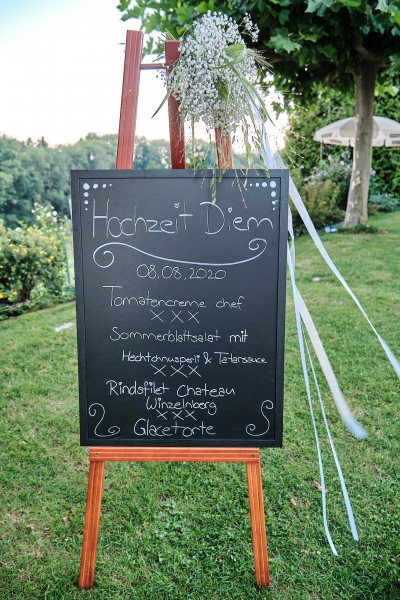 Hochzeit Diem
08.08.2020
Tomatencreme chef
XXX
Sommerblattsalat mit
Hechtchnusperli & Tatarsauce
XXX
Rindsfilet Chateau
Winzelnberg
XXX
Glacetorte